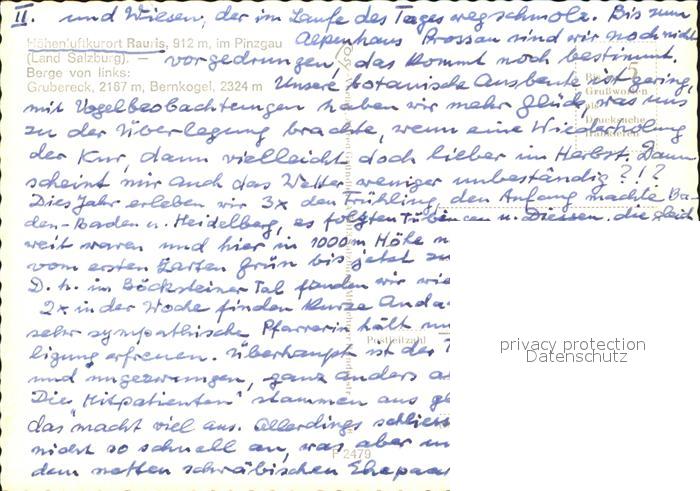 II. und Wiesen, der im Laufe des Tages wegschmolz. Bis zum
Alpenhaus Prossau sind wir noch nicht
Höhenluftkurort Rauris, 912 m, im Pinzgau
(Land Salzburg). —
vorgedrungen, das kommt noch bestimmt.
Berge von links:
Grubereck, 2167 m, Bernkogel, 2324 m
Unsere botanische Ausbeute ist gering,
mit Vogelbeobachtungen haben wir mehr Glück, was uns
zu der Überlegung brachte, wenn eine Wiederholung
der Kur, dann vielleicht doch lieber im Herbst. Dann
scheint mir auch das Wetter weniger unbeständig?!?
Dies Jahr erleben wir 3x den Frühling, den Anfang machte Ba-
den-Baden u. Heidelberg, es folgten Tübingen u. Diessen, die gleich
weit waren und hier in 1000 m Höhe
vom ersten zarten Grün bis jetzt zu
D. h. im Böcksteiner Tal fanden wir wie
2x in der Woche finden kurze Anda-
sehr sympathische Pfarrerin hält
Postleitzahl
ligung erfreuen. Überhaupt ist das
und ungezwungen, ganz anders
Die "Mitpatienten" stammen aus
das macht viel aus. Allerdings schliess
nicht so schnell an, was aber
F 2479
dem netten schwäbischen Ehepaar
privacy protection
Datenschutz